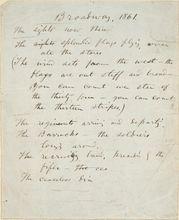 Broadway, 1861.
The sights now there
The splendid flags flying over
all the stores
(The wind sets from the west — the
flags are out stiff and broad —
you can count every star of
the thirty four — you can count
the thirteen stripes.)
The regiments arriving and departing
The Barracks — the soldiers
lounging around
The recruiting band, preceded by the
fifer —
The ceaseless din